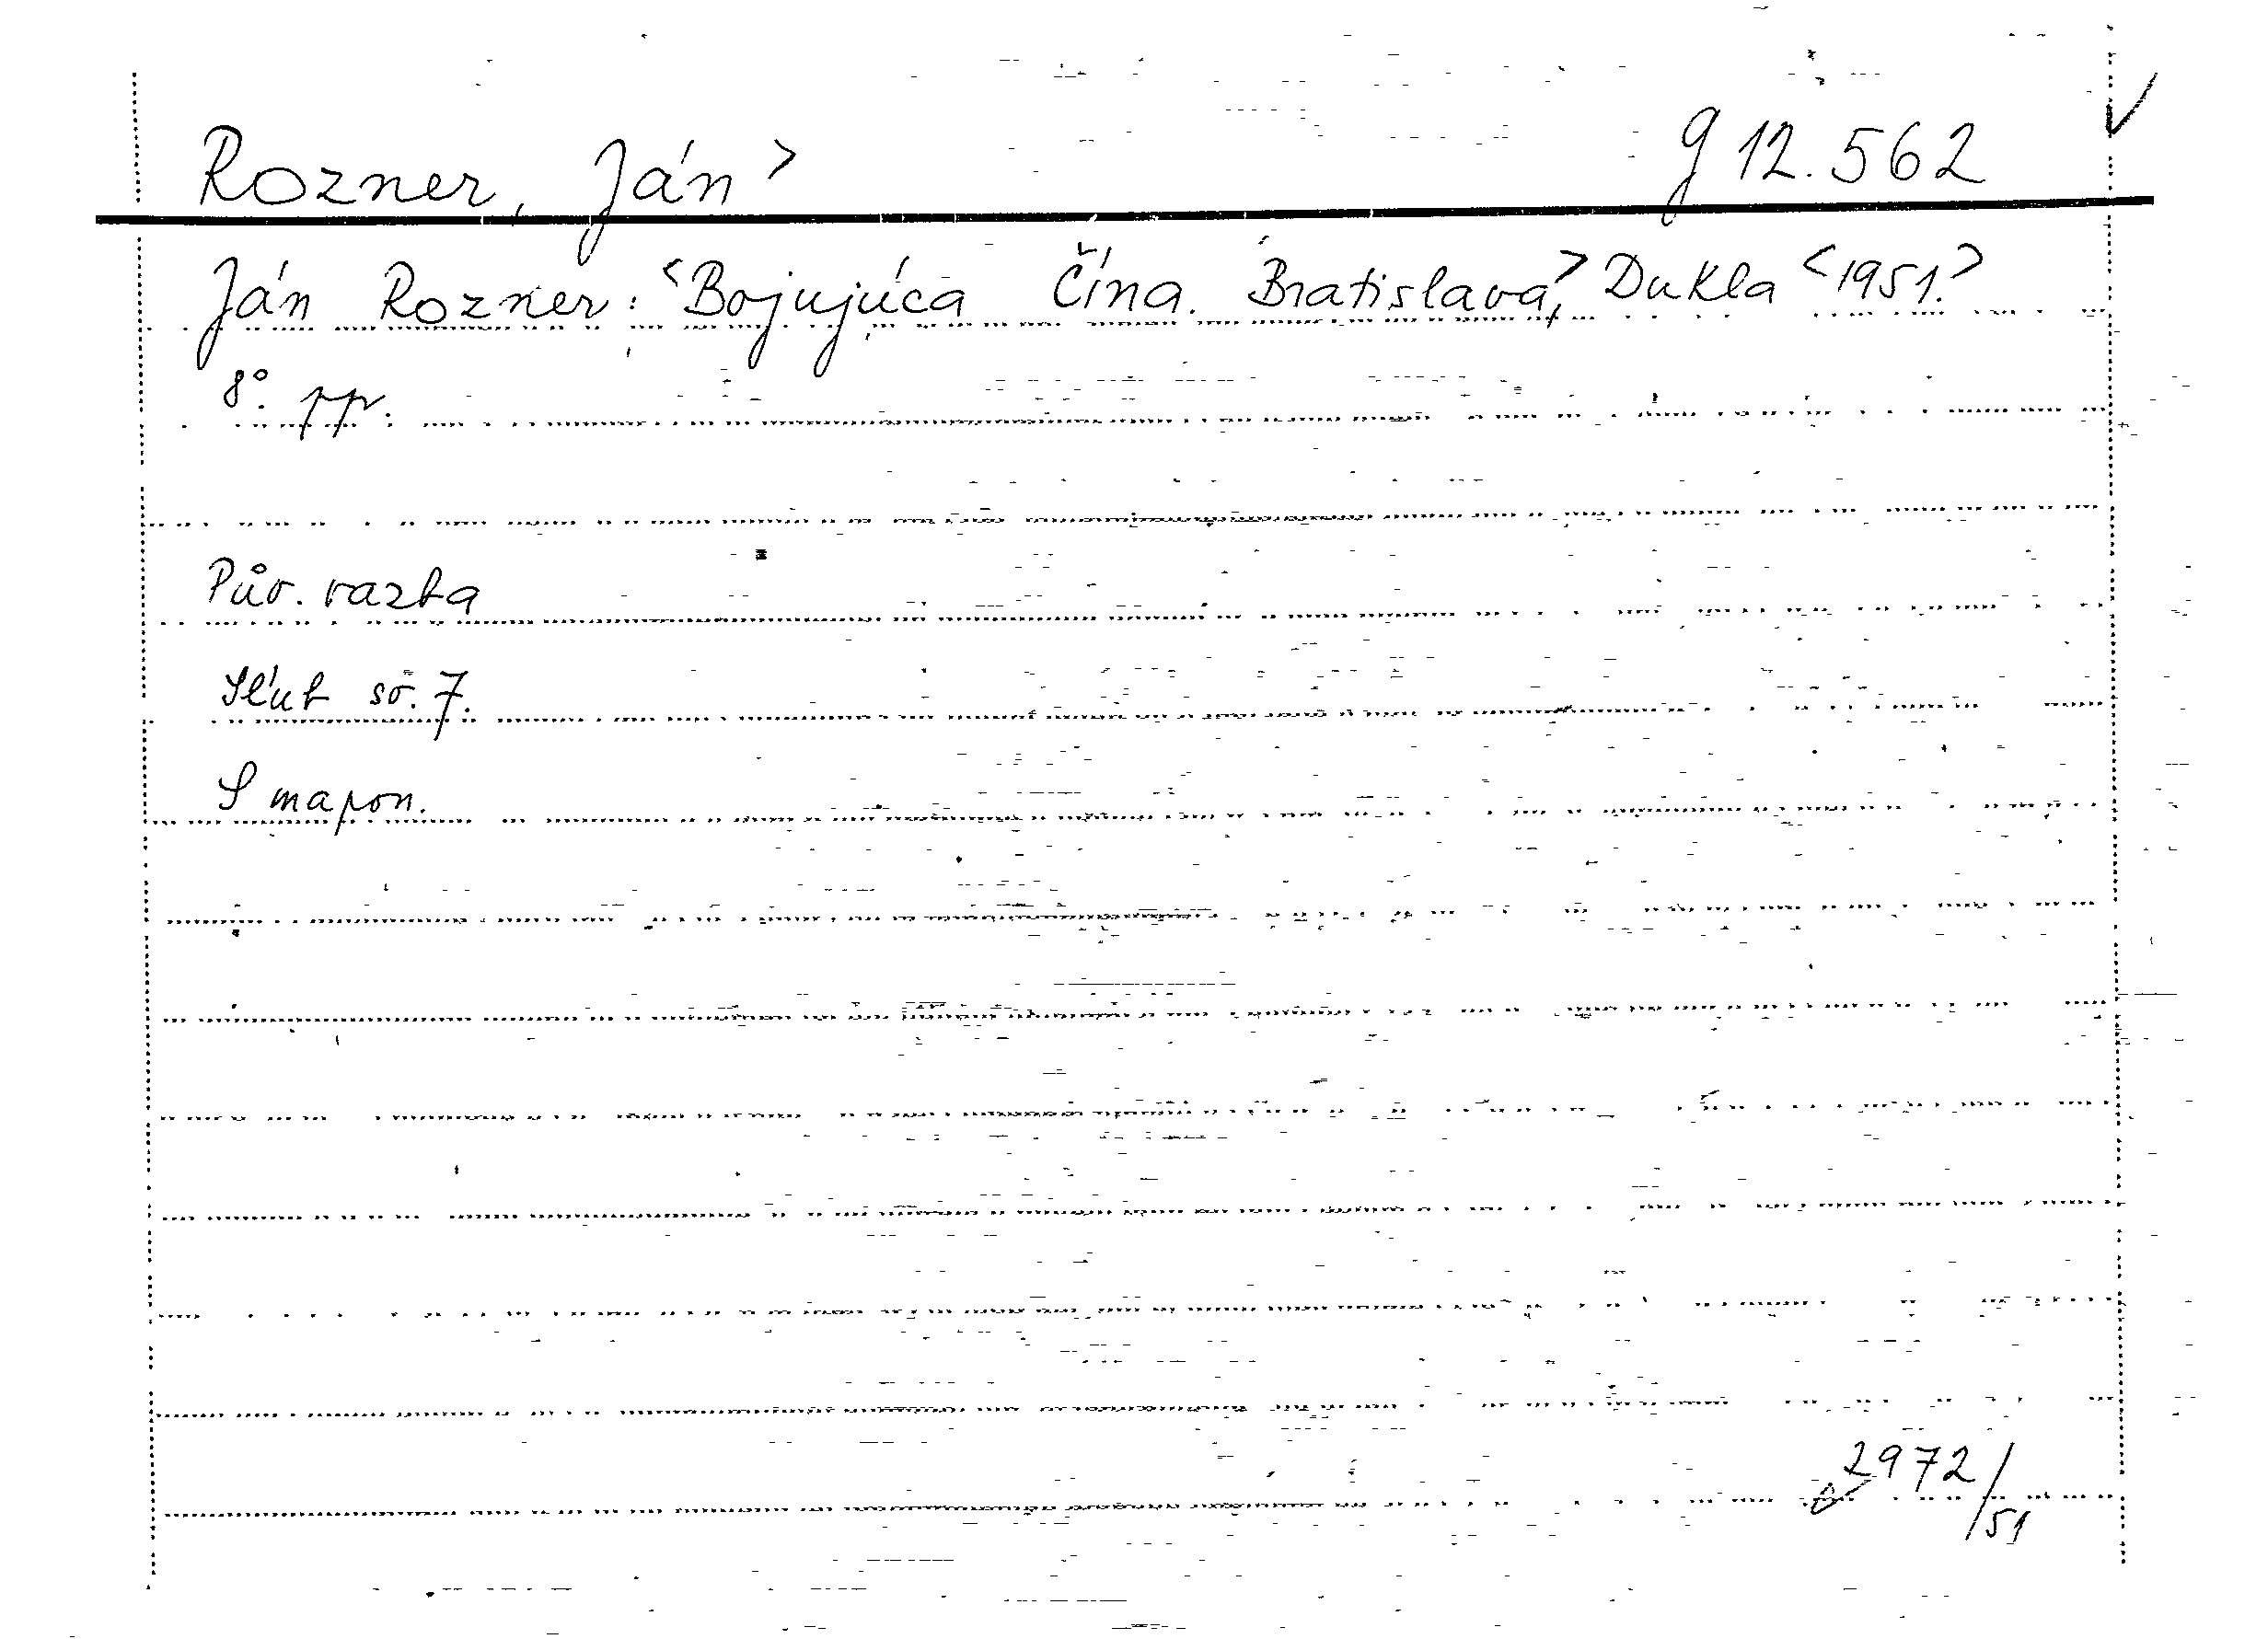 Rozner, Ján> g 12.562
Ján Rozner: <Bojujúca Čína. Bratislava,> Dukla <1951.>
8°. pp.
Pův. vazba
Sľub sv. 7.
S mapon.
2972/51